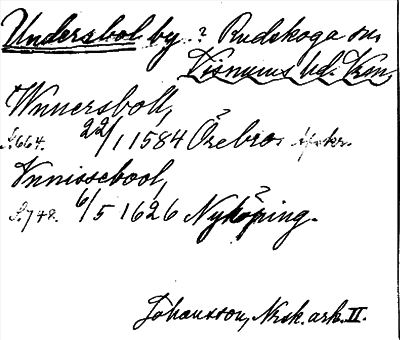 Undersbol by ? Rudskoga sn,
Visnums hd. Krn.
Wnnersboll,
S. 664. 22/1 1584 Örebro. ?
Vnnissebool,
S. 748. 6/5 1626 Nyköping. ?
Johansson, Nrsk. ark. II.